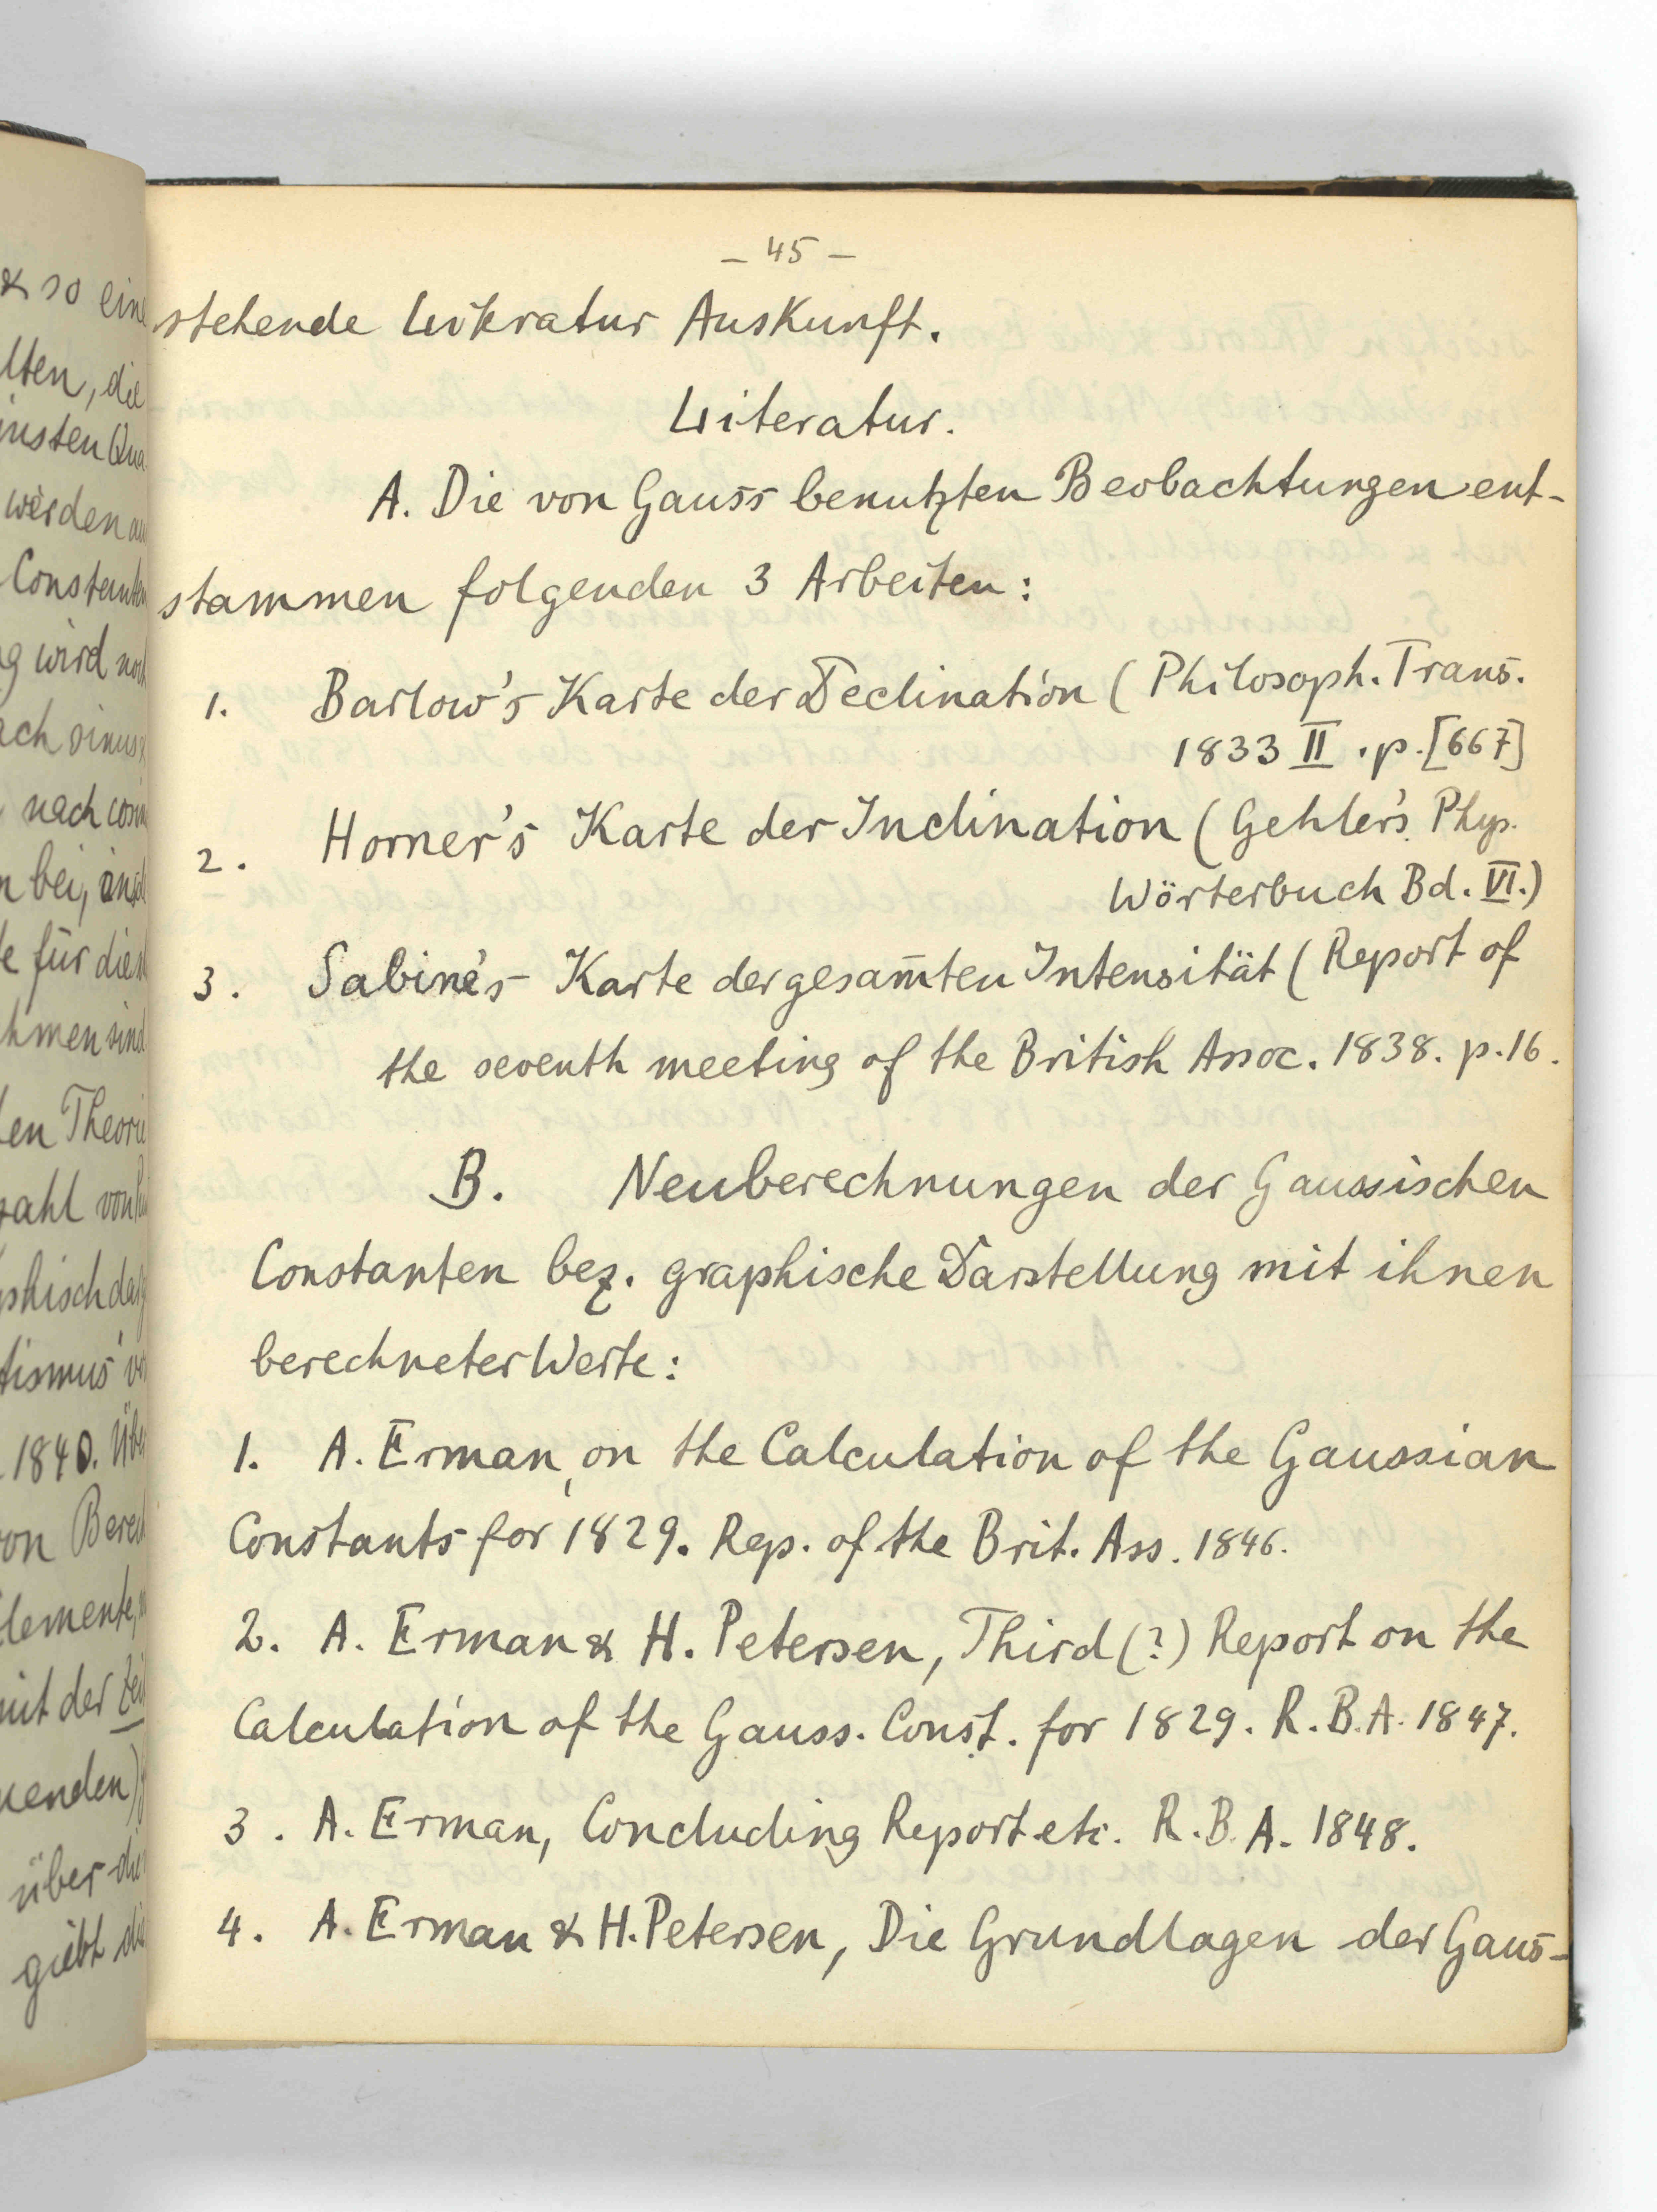 - 45 -
stehende Literatur Auskunft.
Literatur.
A. Die von Gauss benutzten Beobachtungen ent-
stammen folgenden 3 Arbeiten:
1. Barlow's Karte der Declination (Philosoph. Trans.
1833 II . p. [667]
2. Horner's Karte der Inclination (Gehler's Phys.
Wörterbuch Bd. VI.)
3. Sabine's Karte der gesam̄ten Intensität (Report of
the seventh meeting of the British Assoc. 1838. p. 16.
B. Neuberechnungen der Gaussischen
Constanten bez. graphische Darstellung mit ihnen
berechneter Werte:
1. A. Erman, on the Calculation of the Gaussian
Constants for 1829. Rep. of the Brit. Ass. 1846.
2. A. Erman & H. Petersen, Third (?) Report on the
Calculation of the Gauss. Const. for 1829. R.B.A. 1847.
3. A. Erman, Concluding Report etc. R.B.A. 1848.
4. A. Erman & H. Petersen, Die Grundlagen der Gaus-
& so eine
lten, die
werden
Constanten
g wird noch
nach
bei,
für
hmen sind
en Theorie
zahl von
1840.
von
mit der
über die
giebt die